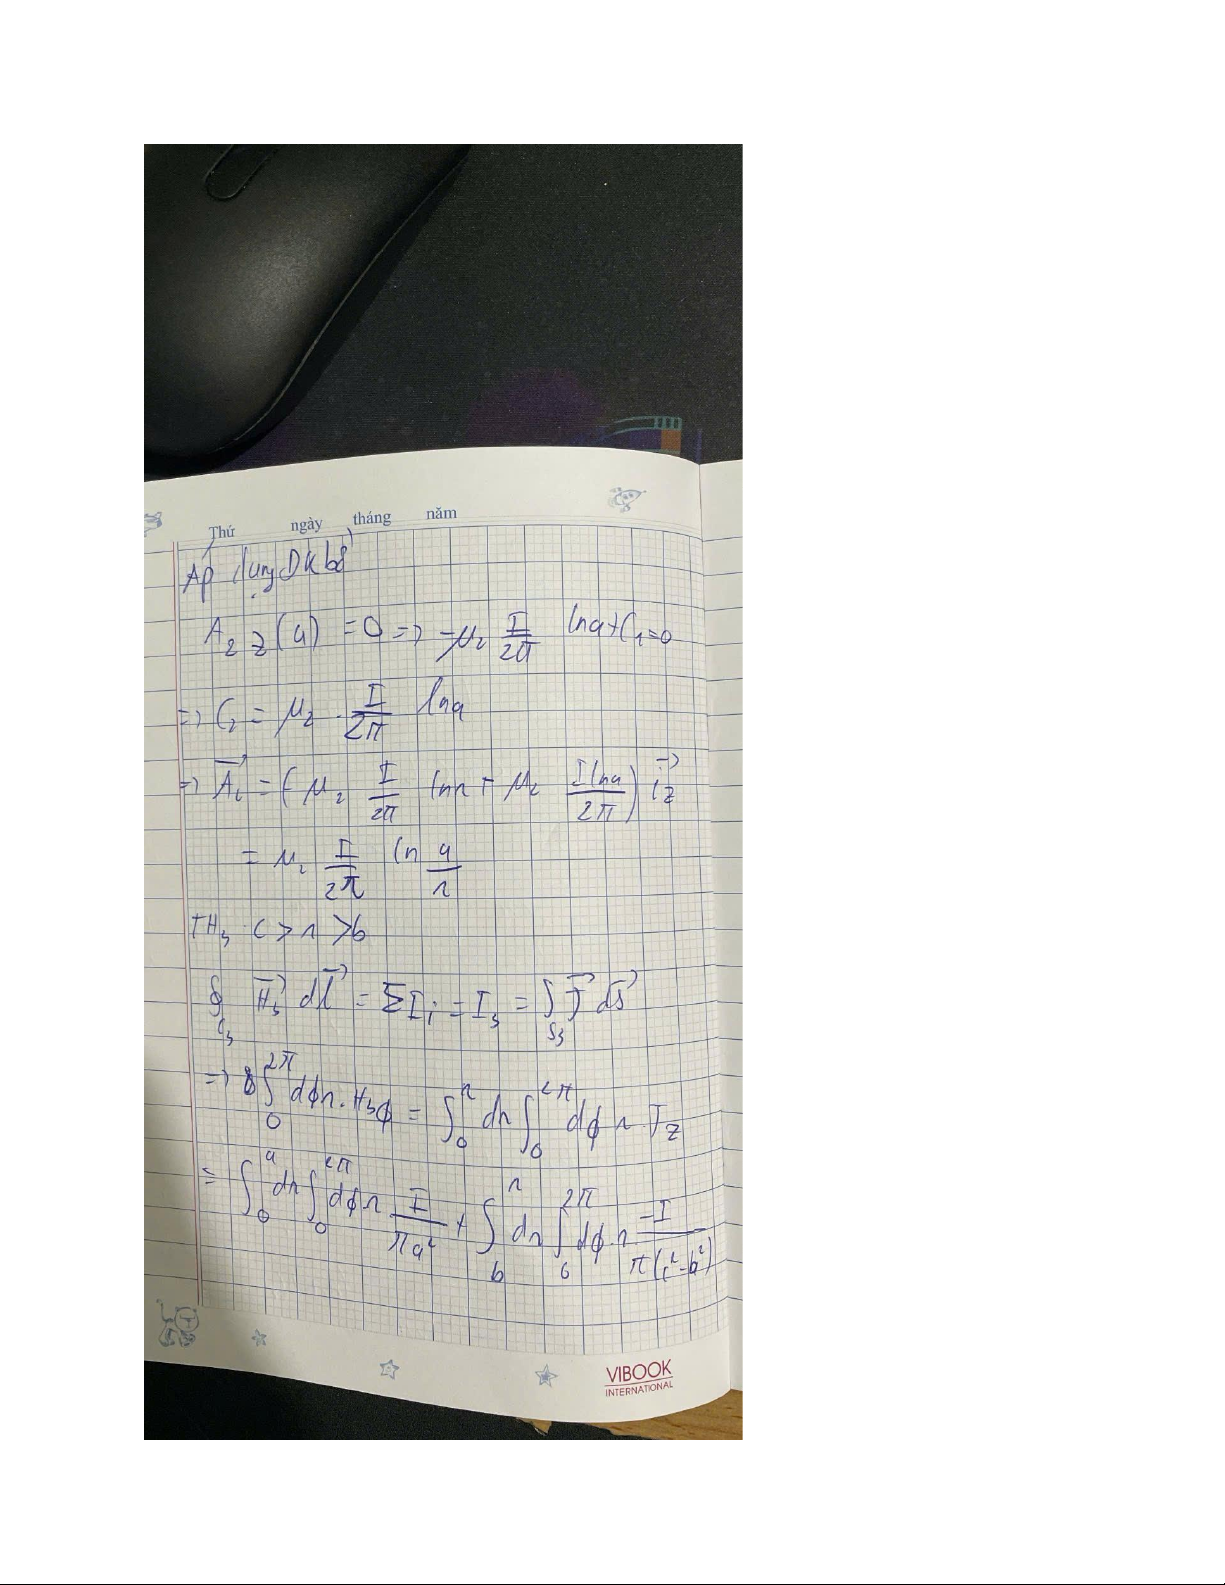 Thứ ngày tháng năm
Áp dụng Đk bờ
A₂z(a) = 0 => -μ₂ I/2π lna + C₂ = 0
=> C₂ = μ₂ . I/2π lna
=> A₂→ = (-μ₂ I/2π lnr + μ₂ I lna/2π) i→z
= μ₂ I/2π ln a/r
TH₃ c > r > b
∮_C₃ H₃→ dl→ = ΣIᵢ = I₃ = ∫_S₃ J→ dS→
=> ∫₀^2π dϕ r . H₃ϕ = ∫₀^r dr ∫₀^2π dϕ r . Jz
= ∫₀^a dr ∫₀^2π dϕ r I/πa² + ∫_b^r dr ∫₀^2π dϕ . r -I/π(c²-b²)
VIBOOK
INTERNATIONAL